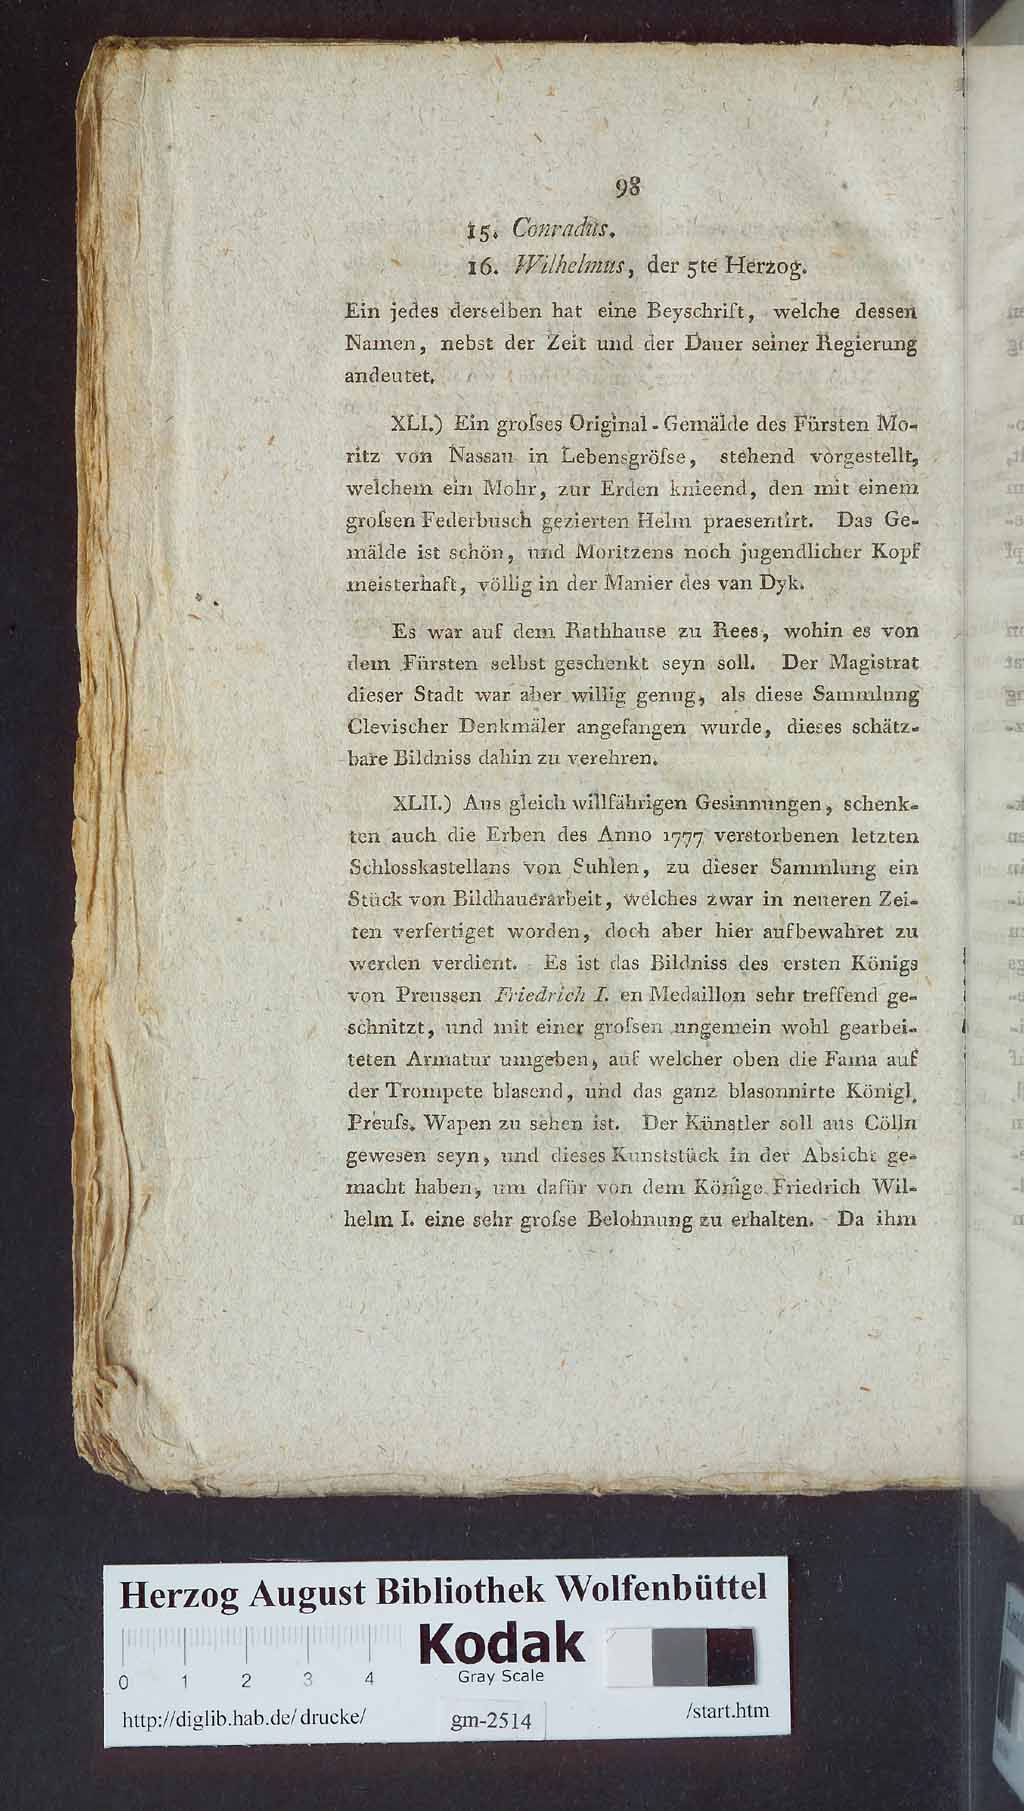 98
15. Conradus.
16. Wilhelmus, der 5te Herzog.
Ein jedes derselben hat eine Beyschrift, welche dessen
Namen, nebst der Zeit und der Dauer seiner Regierung
andeutet.
XLI.) Ein groſses Original-Gemälde des Fürsten Mo-
ritz von Nassau in Lebensgröſse, stehend vorgestellt,
welchem ein Mohr, zur Erden knieend, den mit einem
groſsen Federbusch gezierten Helm praesentirt. Das Ge-
mälde ist schön, und Moritzens noch jugendlicher Kopf
meisterhaft, völlig in der Manier des van Dyk.
Es war auf dem Rathhause zu Rees, wohin es von
dem Fürsten selbst geschenkt seyn soll. Der Magistrat
dieser Stadt war aber willig genug, als diese Sammlung
Clevischer Denkmäler angefangen wurde, dieses schätz-
bare Bildniss dahin zu verehren.
XLII.) Aus gleich willfährigen Gesinnungen, schenk-
ten auch die Erben des Anno 1777 verstorbenen letzten
Schlosskastellans von Suhlen, zu dieser Sammlung ein
Stück von Bildhauerarbeit, welches zwar in neueren Zei-
ten verfertiget worden, doch aber hier aufbewahret zu
werden verdient. Es ist das Bildniss des ersten Königs
von Preussen Friedrich I. en Medaillon sehr treffend ge-
schnitzt, und mit einer groſsen ungemein wohl gearbei-
teten Armatur umgeben, auf welcher oben die Fama auf
der Trompete blasend, und das ganz blasonnirte Königl.
Preuſs. Wapen zu sehen ist. Der Künstler soll aus Cölln
gewesen seyn, und dieses Kunststück in der Absicht ge-
macht haben, um dafür von dem Könige Friedrich Wil-
helm I. eine sehr groſse Belohnung zu erhalten. Da ihm
Herzog August Bibliothek Wolfenbüttel
Kodak
Gray Scale
0 1 2 3 4
http://diglib.hab.de/drucke/ gm-2514 /start.htm